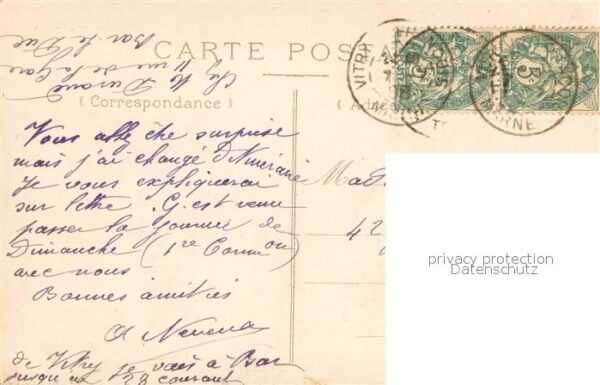 CARTE POSTALE
(Correspondance)
Ch M Durand
11 rue de la Gare
Bar le Duc
Vous allez être surprise
mais j'ai changé d'itinéraire
Je vous expliquerai
sur lettre. G. est venu
passer la journée de
Dimanche (1re Common)
avec nous
Bonnes amitiés
de Vitry je vais à Bar
jusqu'au 28 courant
Mad
42
VITRY
MARNE
MARNE
5
privacy protection
Datenschutz